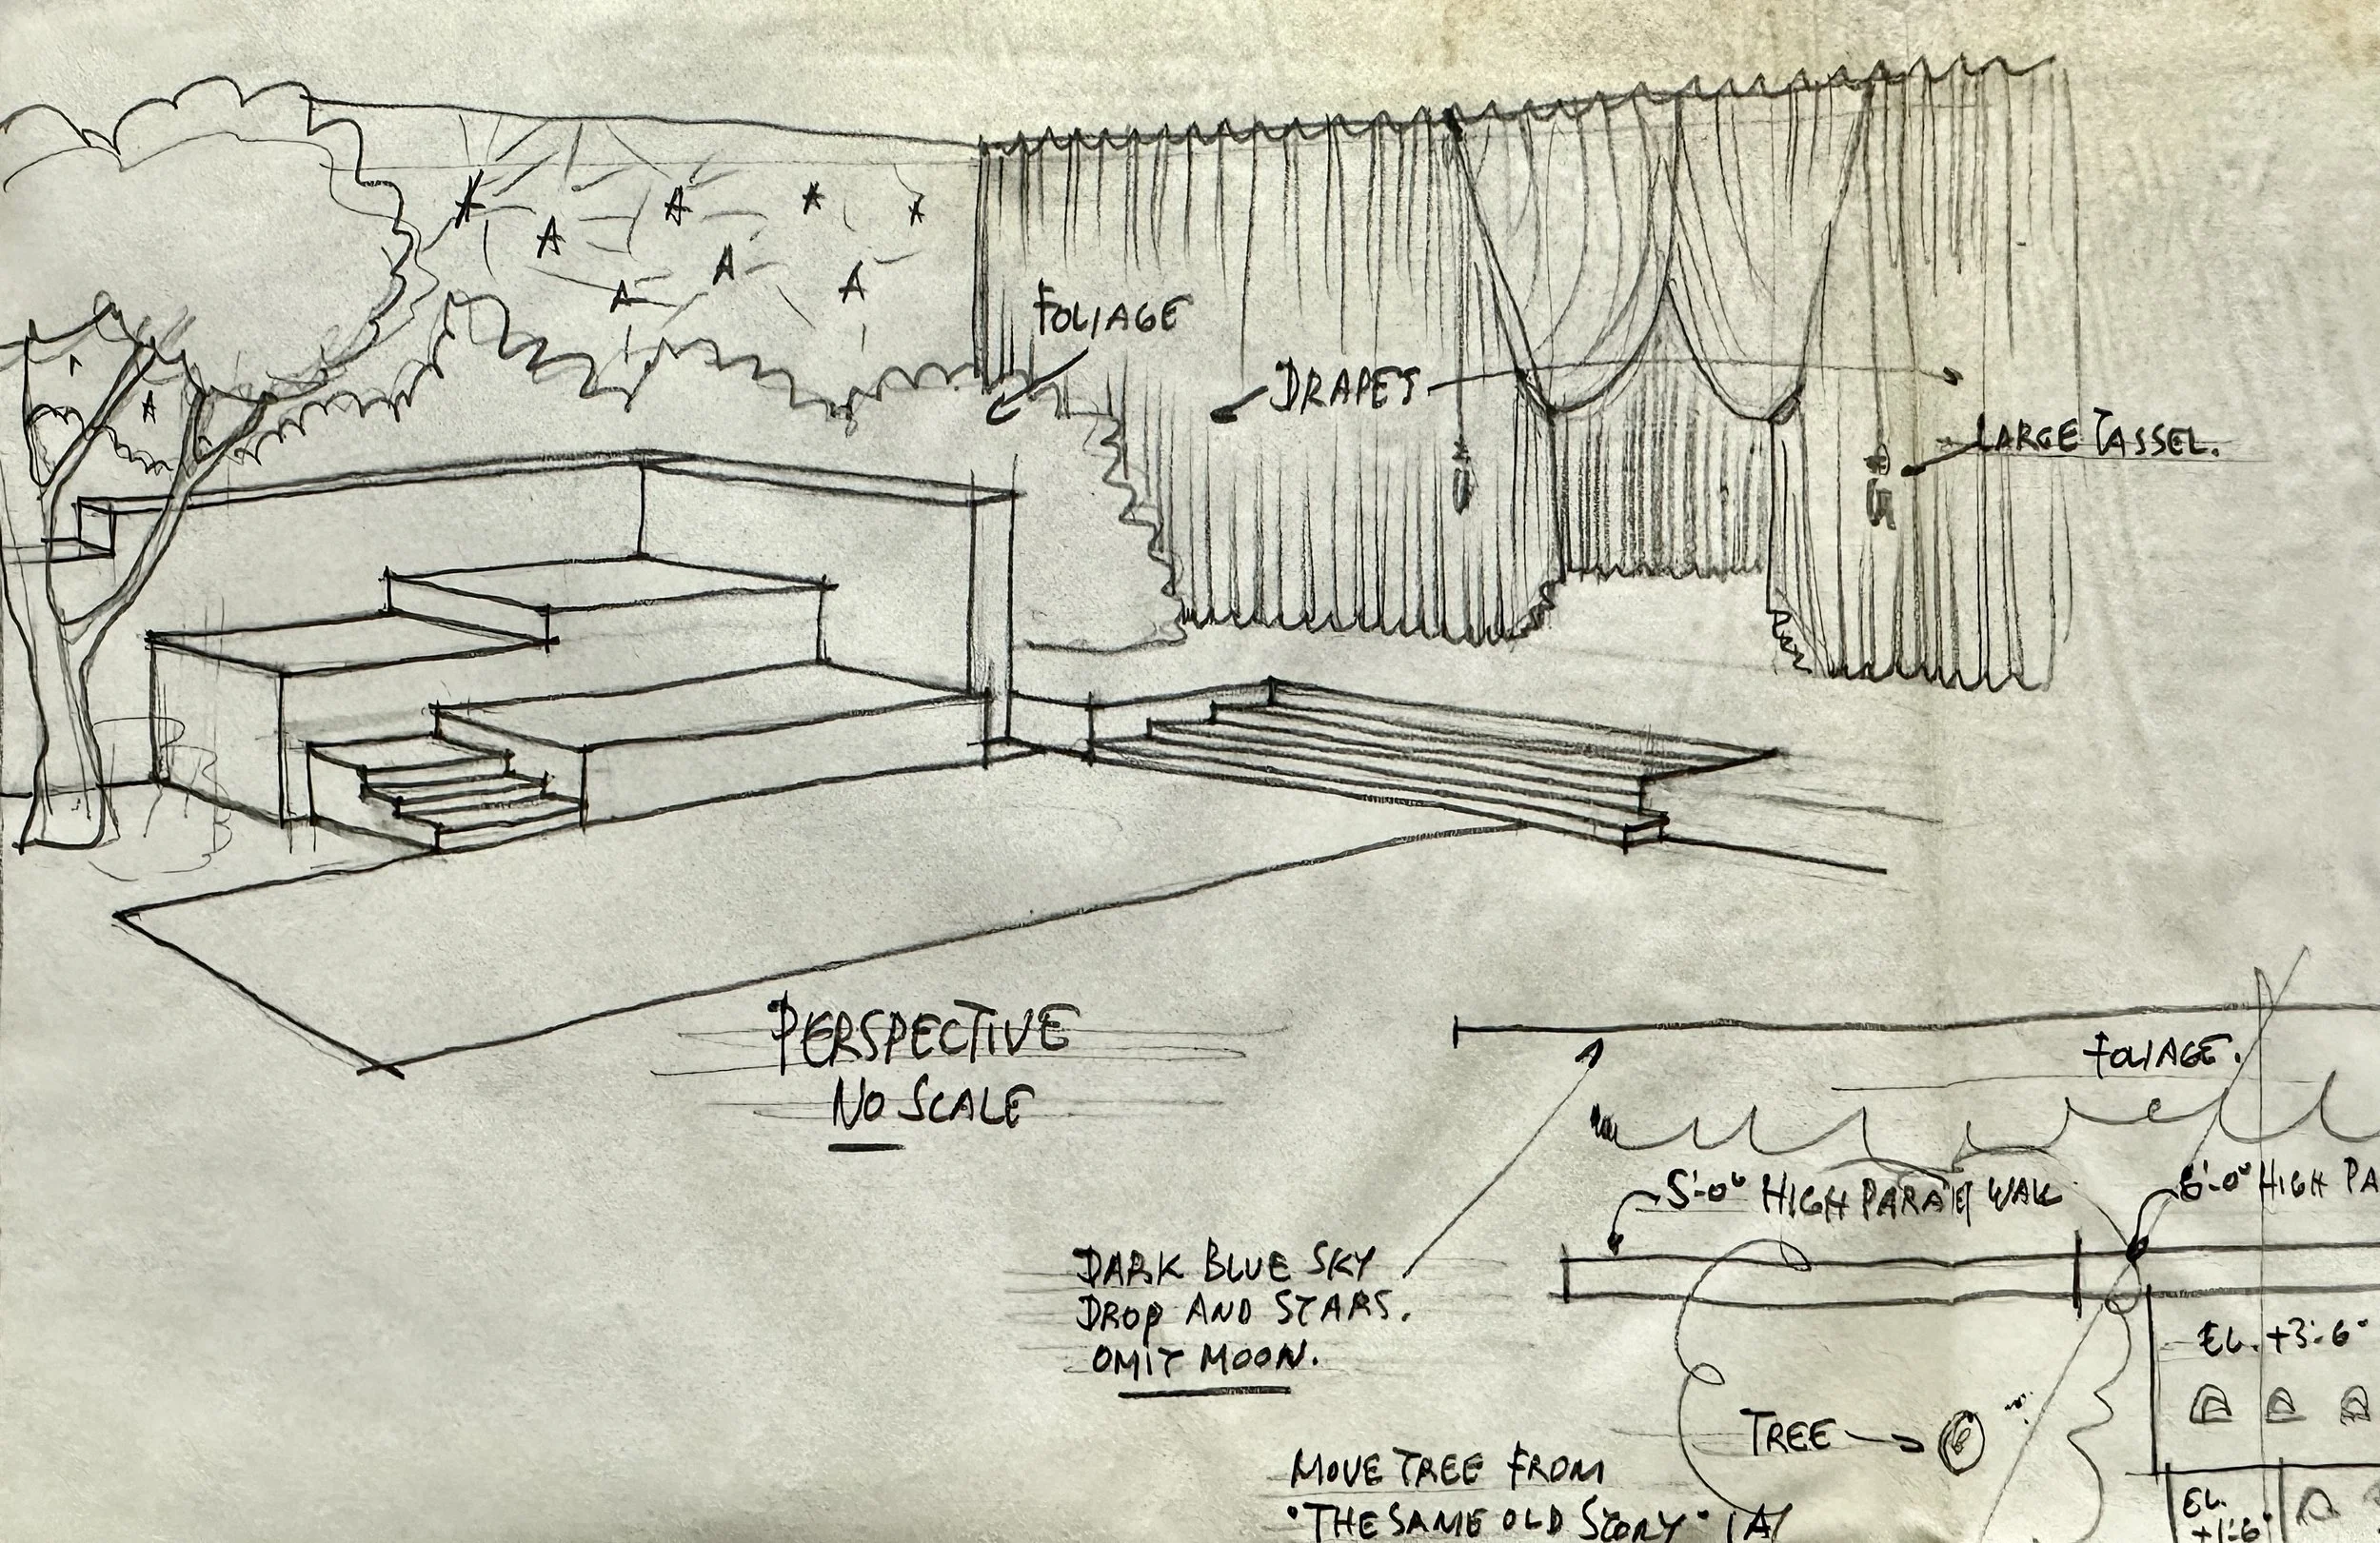 FOLIAGE
DRAPES
LARGE TASSEL.
PERSPECTIVE
NO SCALE
FOLIAGE.
5'-0" HIGH PARAPET WALL
6'-0" HIGH PA
DARK BLUE SKY
DROP AND STARS.
OMIT MOON.
EL. +3'-6"
TREE
MOVE TREE FROM
"THE SAME OLD STORY" (A)
EL.
+1'-6"